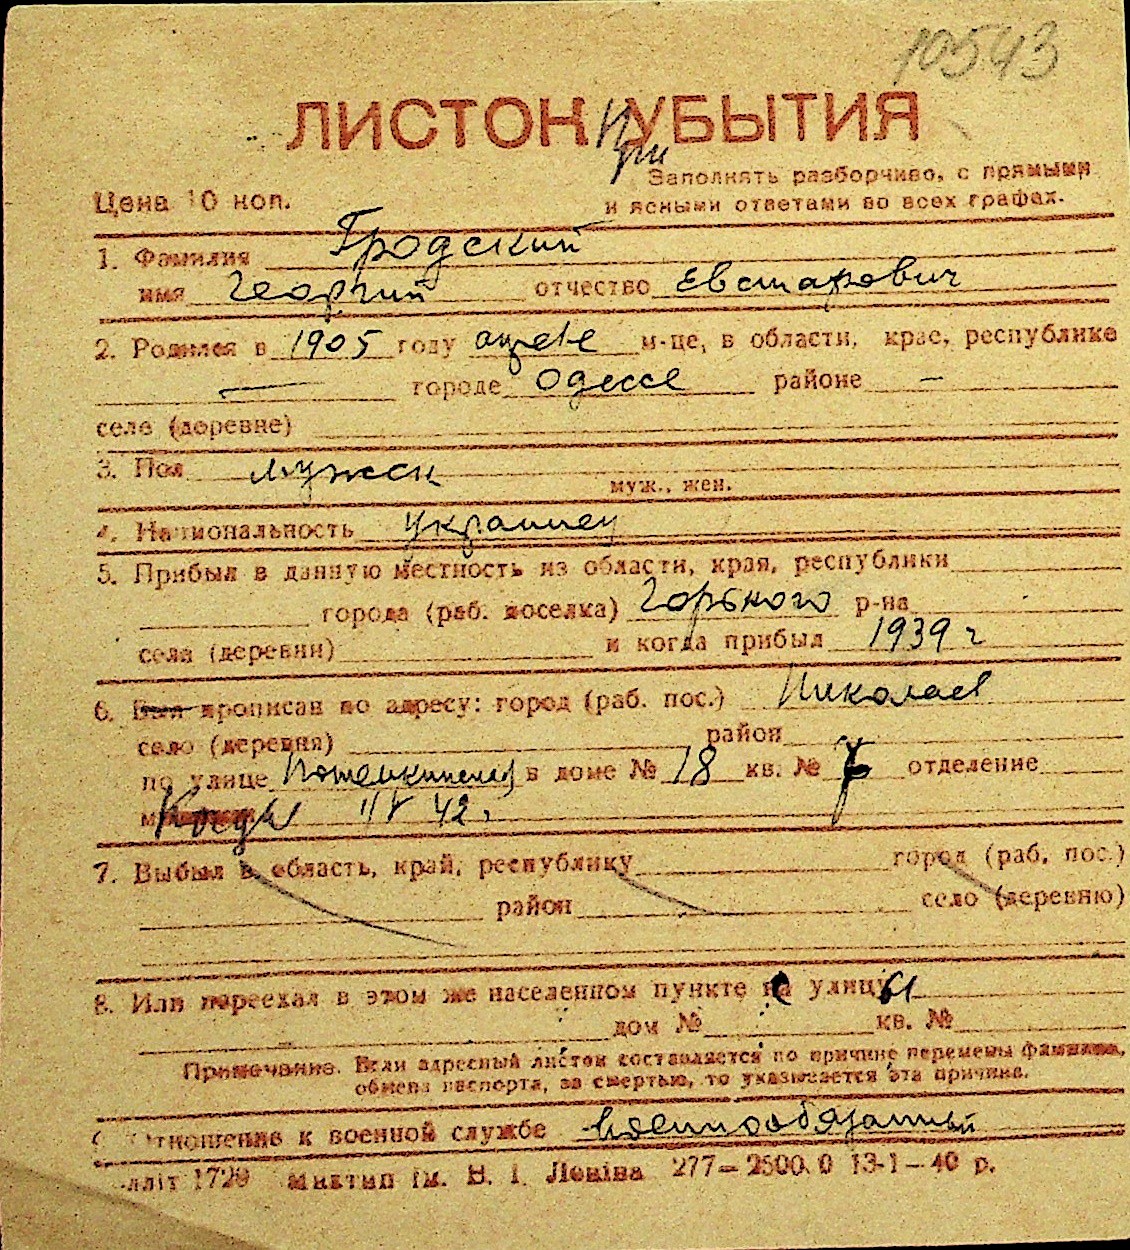 10543
ЛИСТОК УБЫТИЯ
При
Заполнять разборчиво, с прямыми
Цена 10 коп. и ясными ответами во всех графах.
1. Фамилия Гродский
имя Георгий отчество Евстафович
2. Родился в 1905 году апреле м-це, в области, крае, республике
— городе Одессе районе —
селе (деревне)
3. Пол мужск
муж., жен.
4. Национальность украинец
5. Прибыл в данную местность из области, края, республики
города (раб. поселка) Горького р-на
села (деревни) и когда прибыл 1939 г
6. Был прописан по адресу: город (раб. пос.) Николаев
село (деревня) район
по улице Потемкинской в доме № 18 кв. № 7 отделение
42.
7. Выбыл в область, край, республику город (раб. пос.)
район село (деревню)
8. Или переехал в этом же населенном пункте с улицы
дом № кв. №
Примечание. Если адресный листок составляется по причине перемены фамилии,
обмена паспорта, за смертью, то указывается эта причина.
Отношение к военной службе военнообязанный
лліт 1729 Миктип ім. В. І. Леніна 277—2500.0 13-1—40 р.